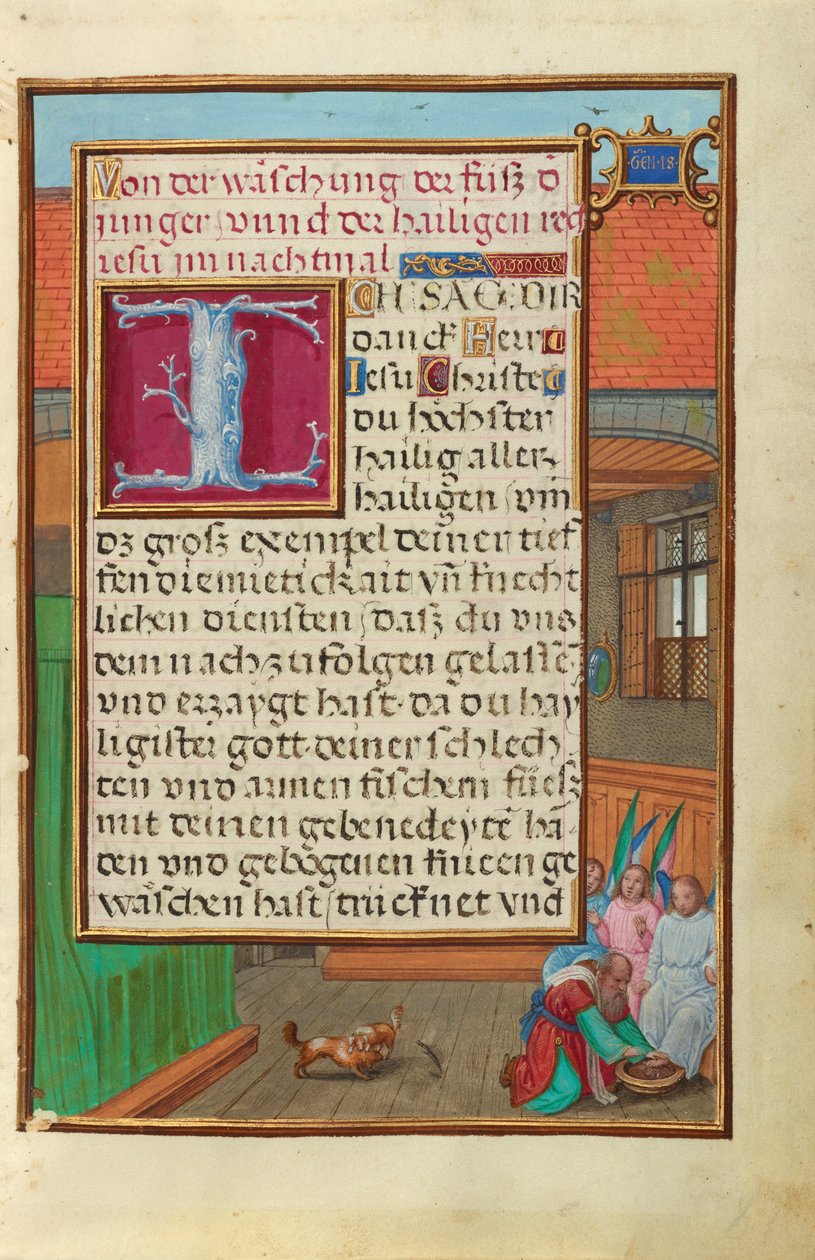 GEN · 18 ·
Von der wäschung der füsz d̄
junger, vnnd der hailigen red
iesu jm nachtmal
ICH SAG DIR
danck Herr
Iesu Christe
du höchster
hailig aller
hailigen, vn̄
dz grosz exempel deiner tief
fen diemietickait vn̄ knecht
lichen diensten, dasz du vns
dem nach zu folgen gelassē
vnd erzaygt hast · da du hay
ligister gott deiner schlech
ten vnd armen fischern füesz
mit deinen gebenedeytē hä
den vnd gebögenen knieen ge
wäschen hast, trücknet vnd